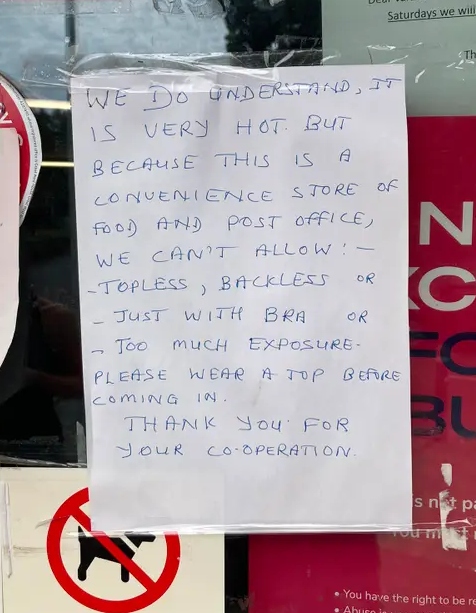 Saturdays we will
WE DO UNDERSTAND, IT
IS VERY HOT. BUT
BECAUSE THIS IS A
CONVENIENCE STORE OF
FOOD AND POST OFFICE,
WE CAN'T ALLOW! -
- TOPLESS, BACKLESS OR
- JUST WITH BRA OR
- TOO MUCH EXPOSURE.
PLEASE WEAR A TOP BEFORE
COMING IN.
THANK YOU FOR
YOUR CO-OPERATION.
N
XC
FO
BU
s not pa
You must
• You have the right to be re